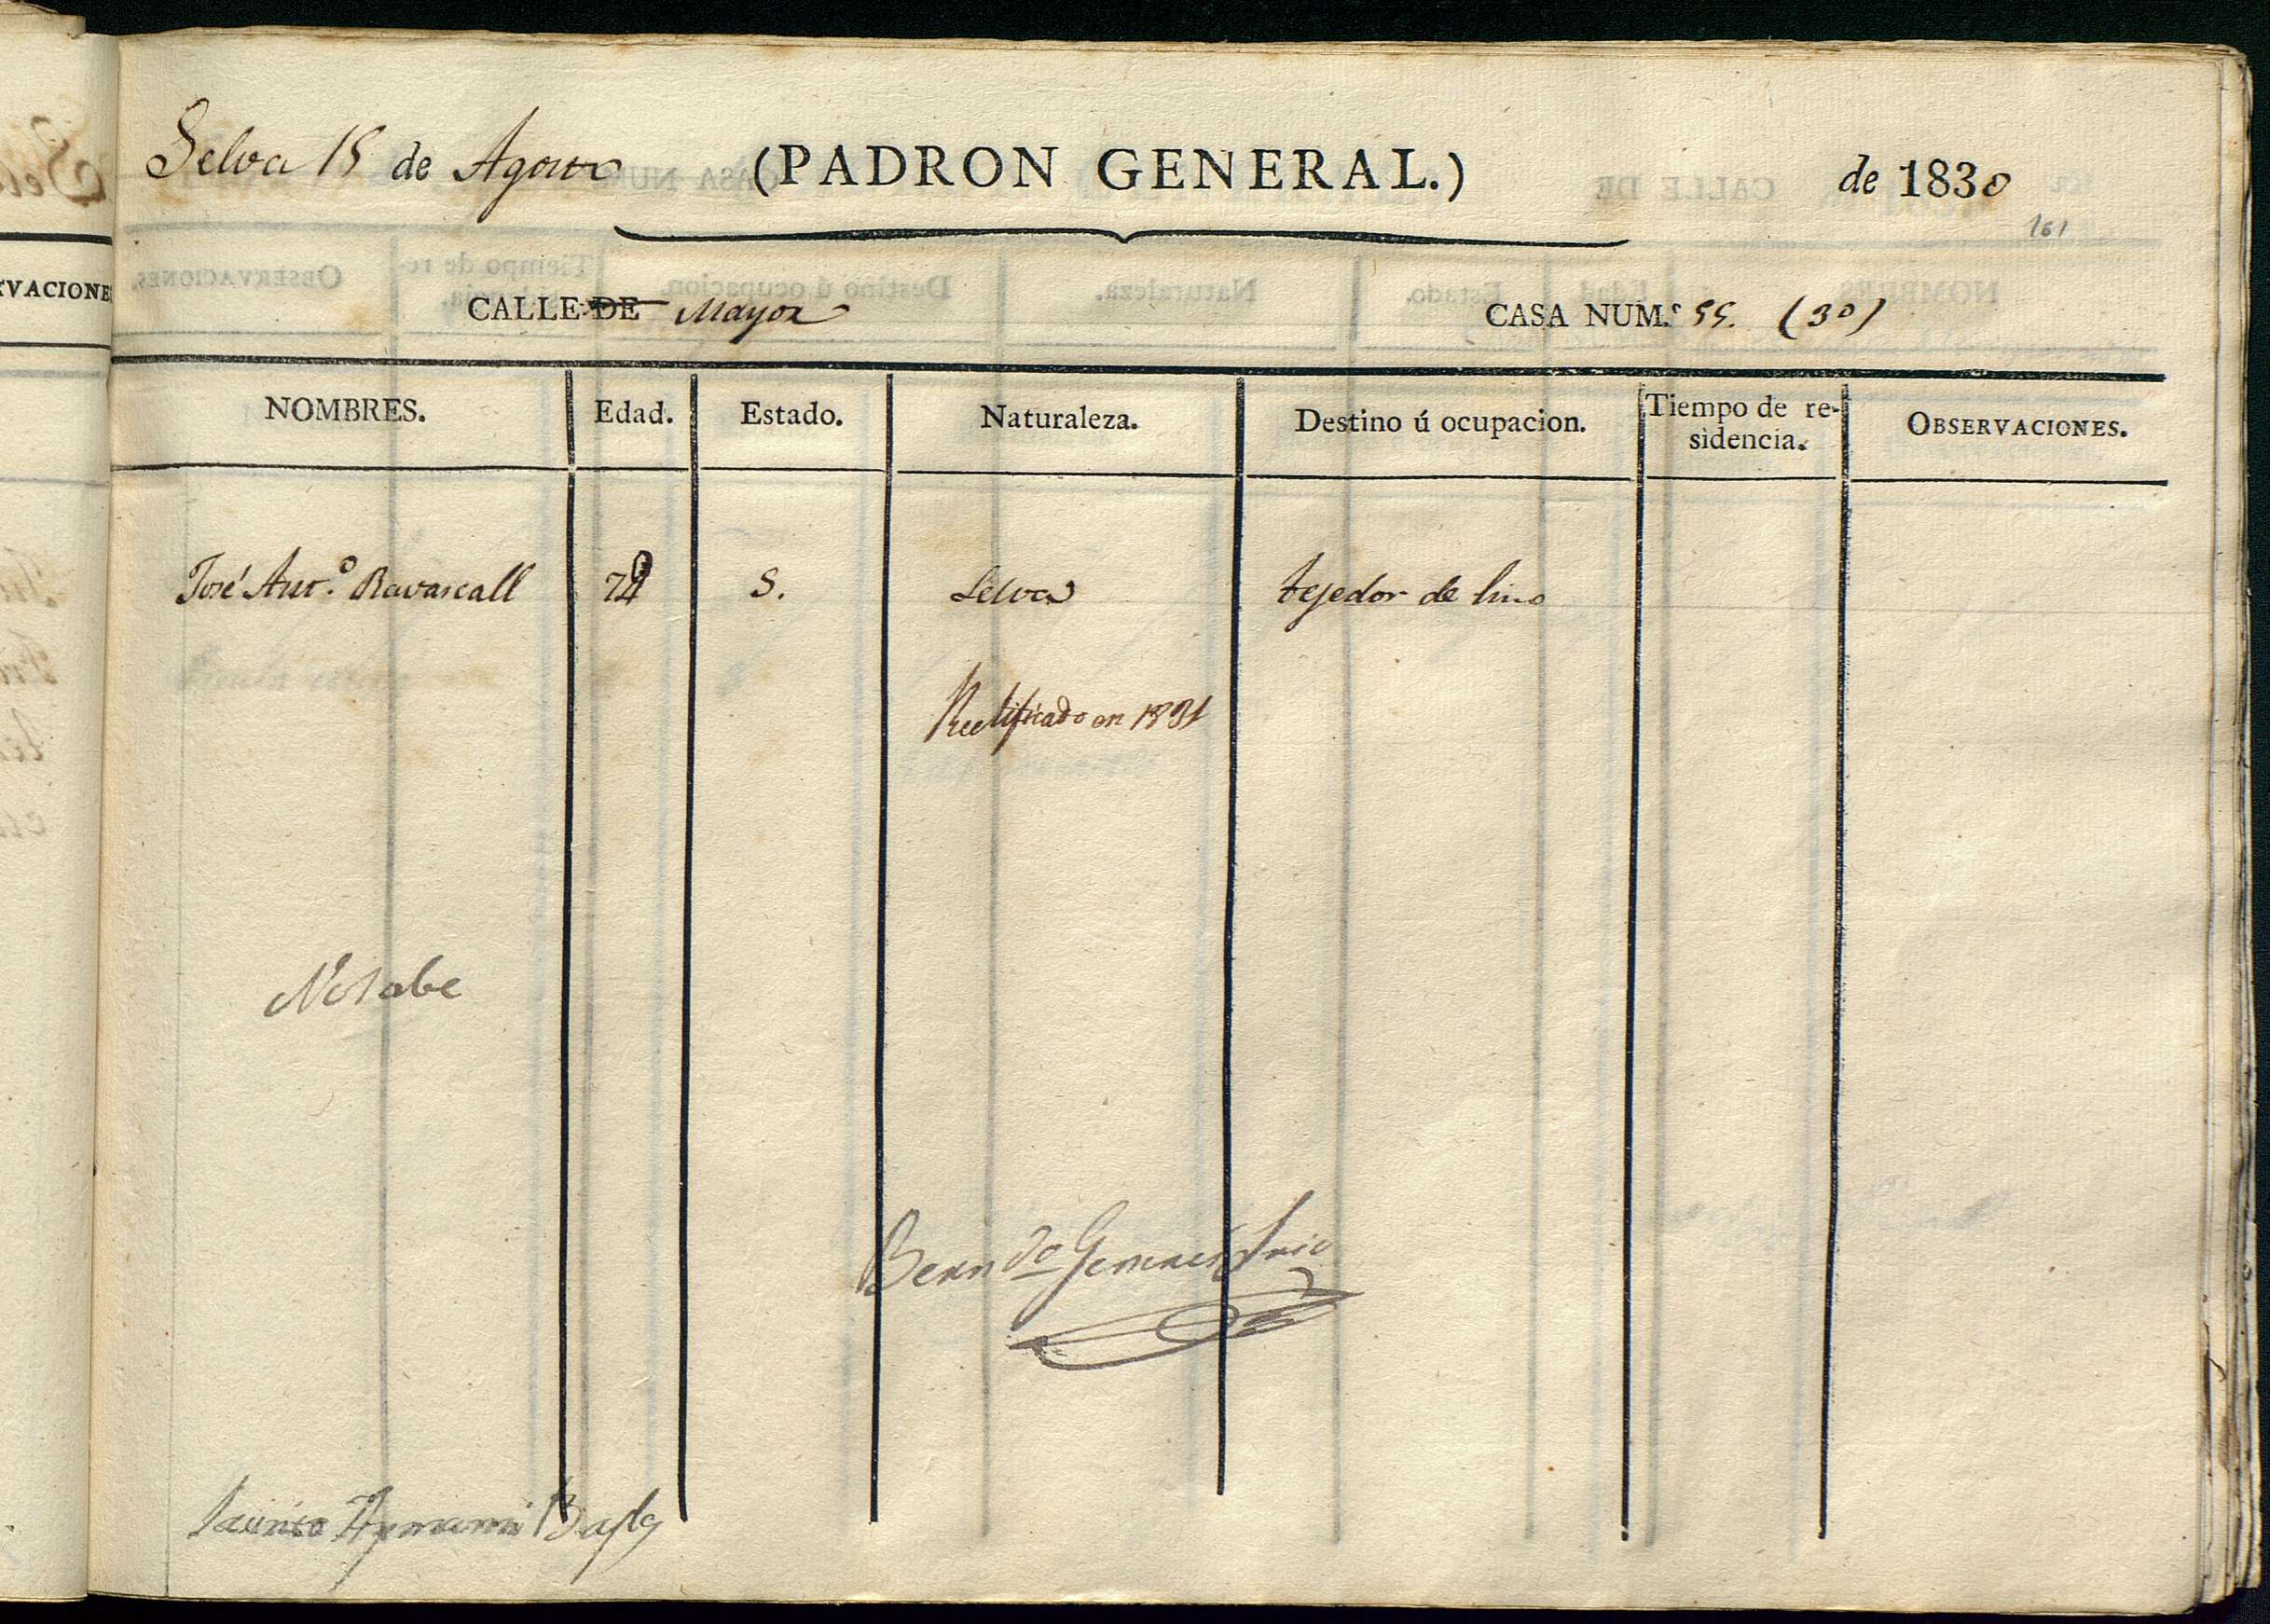 Selva 15 de Agosto (PADRON GENERAL.) de 1830
161
CALLE DE Mayor CASA NUM.º 55. (30)
NOMBRES. Edad. Estado. Naturaleza. Destino ú ocupacion. Tiempo de re-
sidencia. OBSERVACIONES.
José Ant.º Ravascall S. Selva tejedor de lino
Rectificado en 1831
No sabe
Bern.do
Jacinto Aymami Bayle